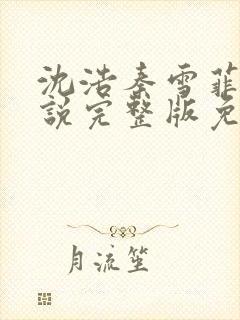 沈浩秦雪菲
說完整版免
月流笙